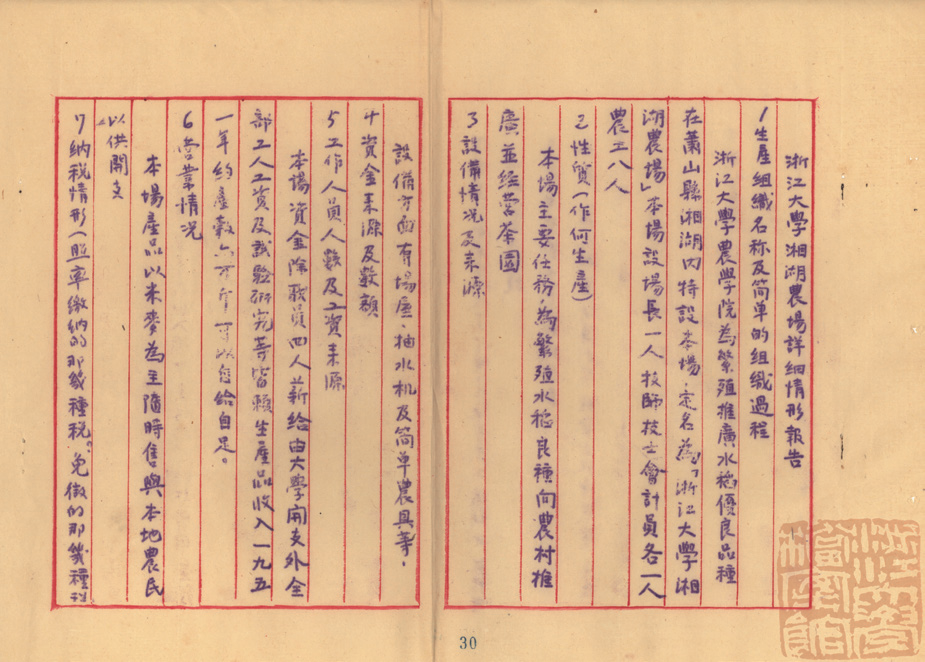 浙江大學湘湖農場詳細情形報告
1 生產組織名称及简单的组織过程
浙江大學農學院為繁殖推廣水稻優良品種
在蕭山縣湘湖内特設本場，定名為「浙江大學湘
湖農場」本場設場長一人技師技士會計員各一人
農工八人
2 性質（作何生產）
本場主要任務，為繁殖水稻良種向農村推
廣並經营茶園
3 設備情况及来源
設備方面有場屋、抽水机及简单農具等，
4 資金来源及數額
5 工作人員人數及工資来源
本場資金除職員四人薪给由大學開支外全
部工人工資及試驗研究等皆賴生產品收入一九五
一年約產穀六万斤可以自给自足。
6 营業情况
本場產品以米麥為主隨時售與本地農民
以供開支
7 纳税情形（照率缴纳的那幾種税。免徵的那幾種
30
浙江大學
檔案館